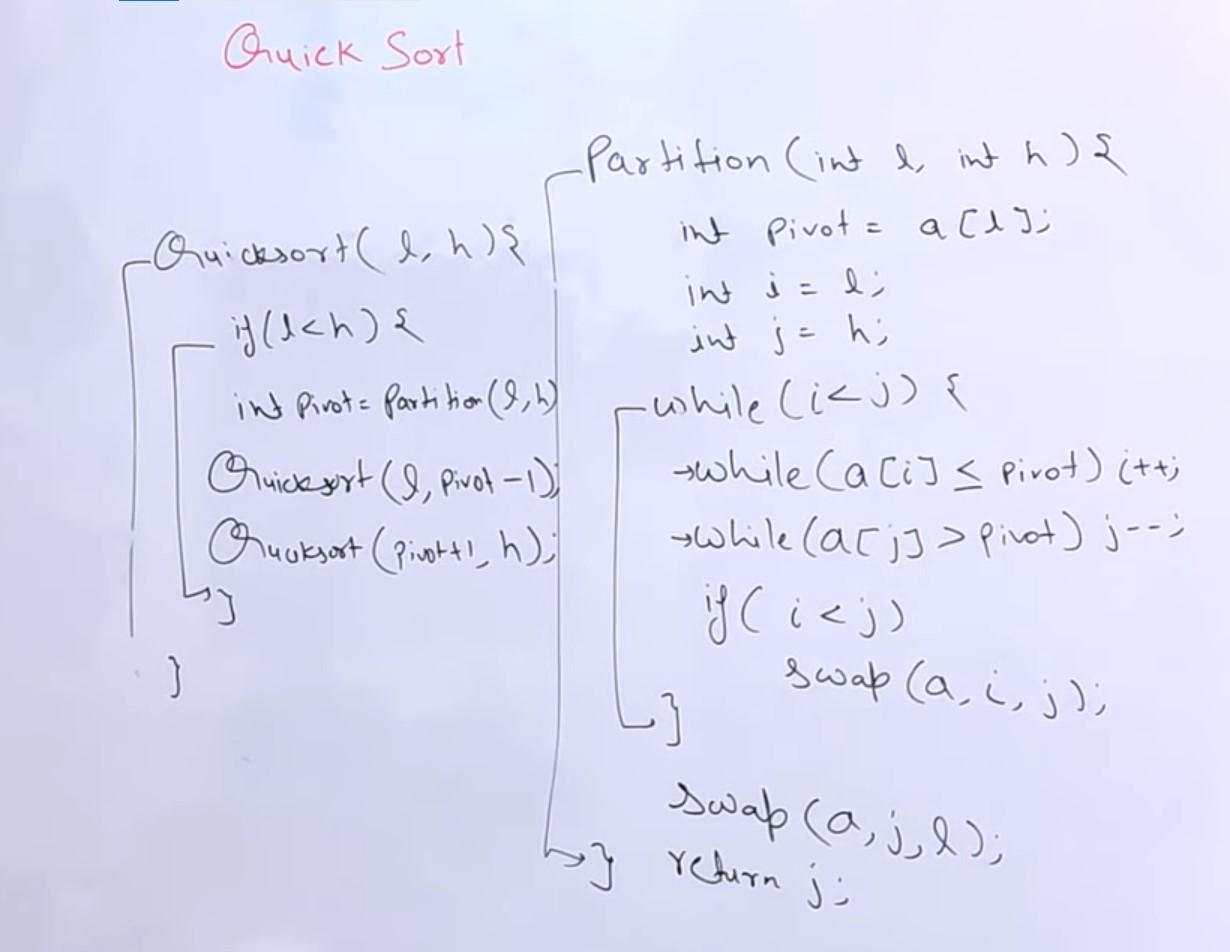 Quick Sort
Quicksort(l, h){
if(l<h){
int Pivot= Partition(l,h)
Quicksort(l, pivot-1);
Quicksort(pivot+1, h);
}
}
Partition(int l, int h){
int pivot = a[l];
int i = l;
int j = h;
while(i<j) {
→while(a[i] ≤ pivot) i++;
→while(a[j] > pivot) j--;
if( i < j)
swap(a, i, j);
}
swap(a, j, l);
return j;
}